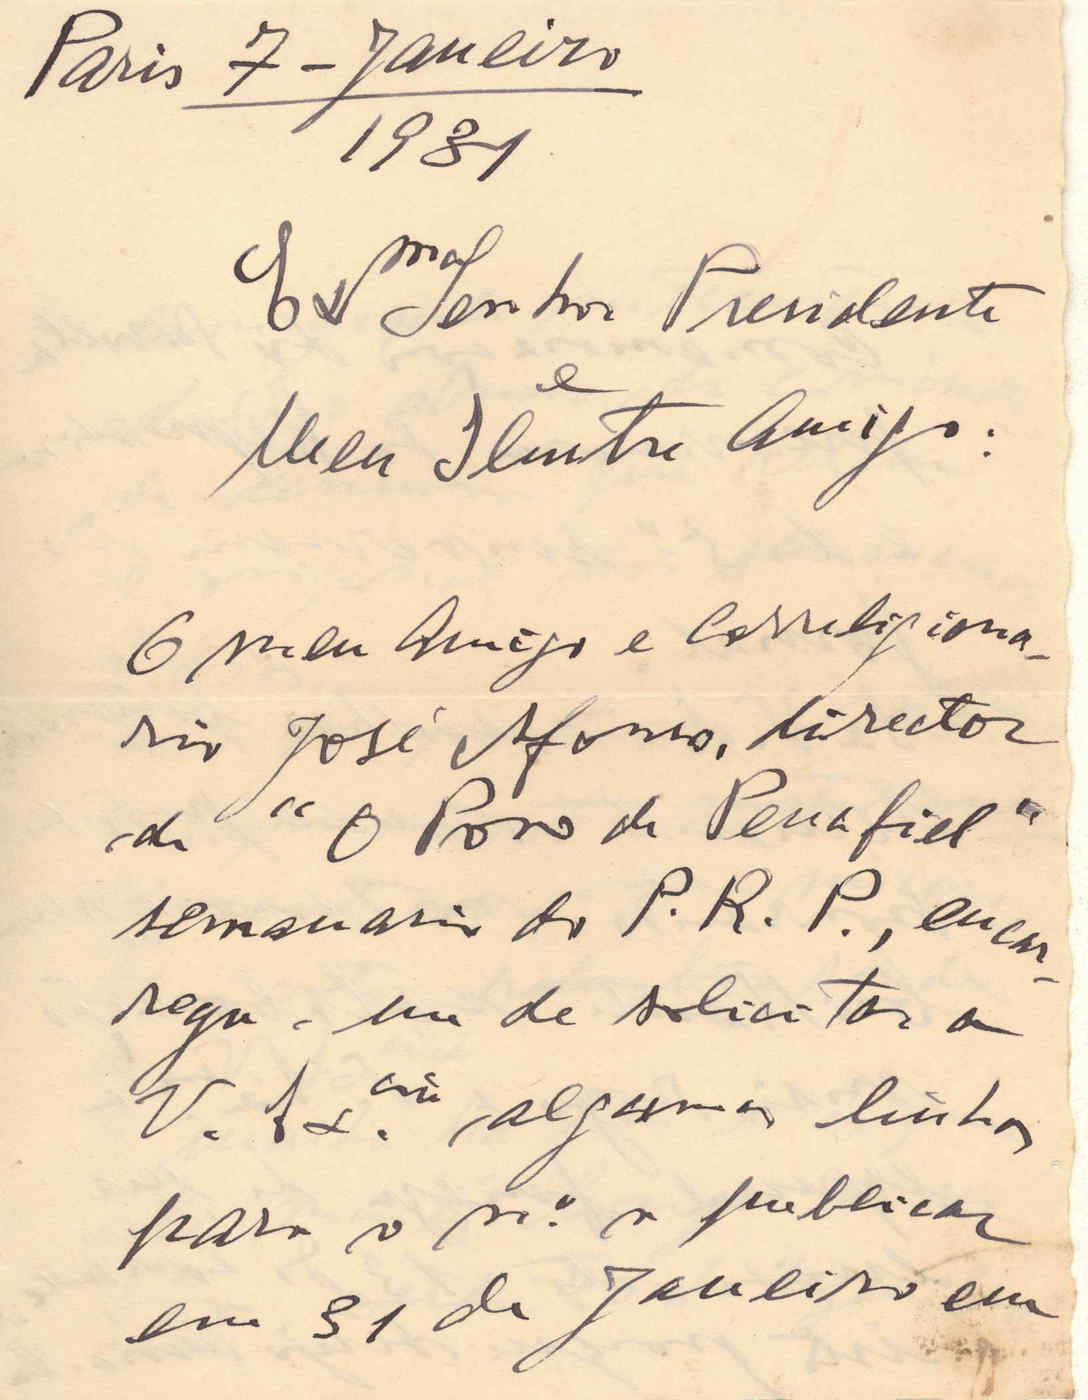 Paris 7 - Janeiro
1931
Ex.mo Senhor Presidente
e
Meu Ilustre Amigo:
O meu Amigo e correligiona-
rio José Afonso, director
de "O Povo de Penafiel"
semanario do P. R. P., encar-
rega-me de solicitar a
V. Ex.cia algumas linhas
para o n.º a publicar
em 31 de Janeiro em